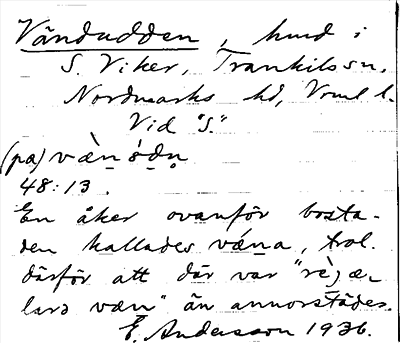 Vändudden, hmd i
S. Viker, Trankils sn,
Nordmarks hd, Vrml l.
Vid "S."
(pa) væ̀n ó̤dn̥
48:13.
En åker ovanför bosta-
den kallades vǽna, trol.
därför att där var "rèjæ-
larə væn" än annorstädes.
E. Andersson 1936.